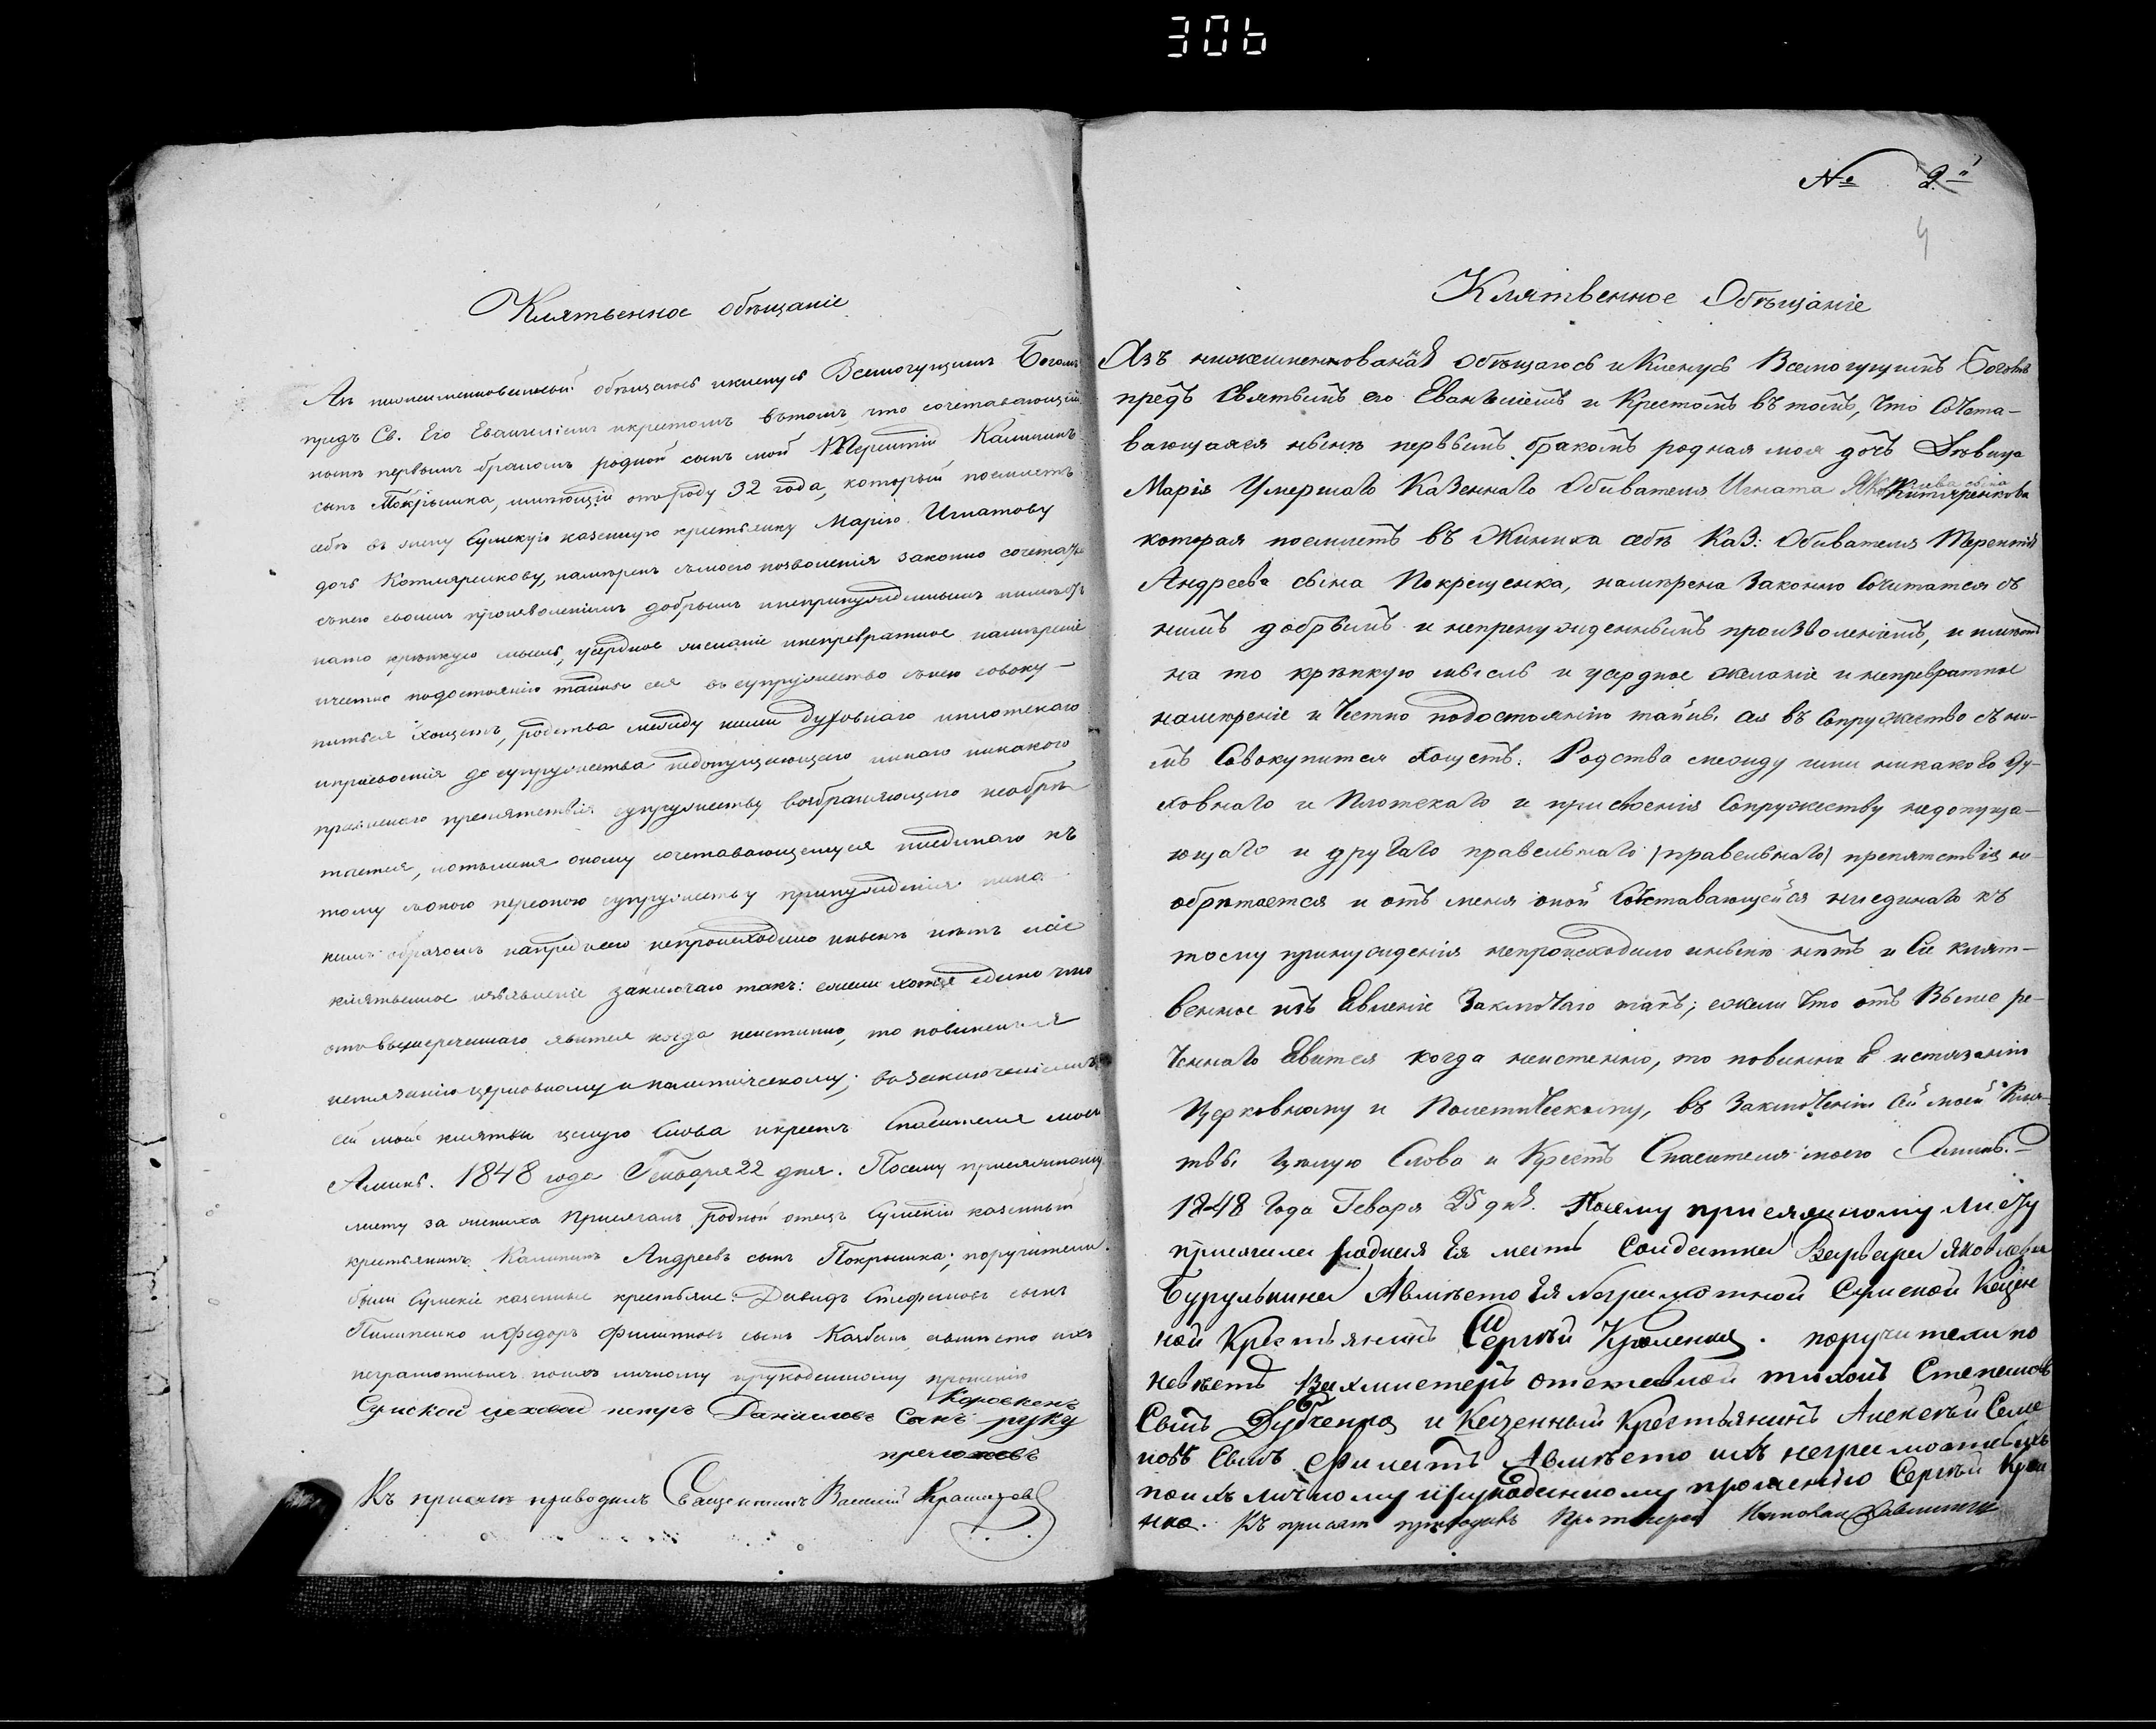 306
Клятвенное обѣщаніе
Азъ нижеименнованный обѣщаюсь и кленусь Всемогущимъ Богомъ
предъ Св. Его Евангелiемъ и крестомъ вътомъ, что сочетавающiй
первымъ бракомъ родной сынъ мой Терентiй Калининъ
сынъ Покрышка, имѣющiй отъ роду 32 года, который поемлетъ
себѣ въ жену Сумскую казенную крестьянку Марiю Игнатову
дочь Котляренкову, намѣренъ съ моего позволенiя законно сочетаться
снею своимъ произволенiемъ добрымъ инепринужденнымъ имѣетъ
нато крѣпкую мысль, усердное желанiе инепревратное намѣренiе
ичестно подостоянiю тайны сея въ супружество снею совоку-
питься хощетъ, родства между ними духовнаго иплотскаго
иприсвоенiя до супружества недопущающаго инаго никакого
препятствiя супружеству возбраняющаго необрѣ-
тается, иотъменя оному сочетавающемуся ниединаго къ
тому съоною персоною супружеству принужденiя ника-
кимъ образомъ напредъсего непроисходило инынѣ нѣтъ исiе
клятвенное изъявленiе заключаю такъ: ежели хотя едино что
отъ вышереченнаго явится когда неистинно, то повиненъ я
истязанiю церковному и политическому; взаключенiе
сей моей клятвы цѣлую Слова икрестъ Спасителя моего
Аминь. 1848 года Генваря 22 дня. Посему присяжному
листу за жениха присягалъ родной отецъ Сумскiй казенный
крестьянинъ Калининъ Андреевъ сынъ Покрышка; поручители
были Сумскiе казенные крестьяне: Давидъ Стефановъ сынъ
Пилипенко иФедоръ Филиповъ сынъ авмѣсто ихъ
неграмотныхъ поихъ личному ирукоданному прошенiю
Сумской цеховой петръ Даниловъ Сынъ Коровкенъ руку
преложевъ
Къ присягѣ приводилъ Священникъ Василiй
№ 2й
4
Клятвенное Обѣщанiе
Азъ нижеименнованная Обѣщаюсь и Кленусь Всемогущимъ Богомъ
предъ Святымъ его Евангелiемъ и Крестомъ въ томъ, что Сочета-
вающаяся нынѣ первымъ бракомъ родная моя дочь Дѣвица
Марiя Умершаго Казеннаго Обивателя Игната Яковлева сына Китляренкова
которая поемлетъ въ Жениха себѣ Каз: Обивателя Терентiя
Андреева сына Покрещенка, намѣрена Законно Сочитатся съ
нимъ добрымъ и непренужденнымъ произволенiемъ, и имѣетъ
на то крѣпкую мысль и усердное желанiе и непревратное
намѣренiе и Честно подостоянiю тайнъ, ея въ Сопружество съ ни-
мъ Совокупится хощетъ. Родства между ими никакого Ду-
ховнаго и Плотскаго и присвоенiя Сопружеству недопуща-
ющаго и другаго правельнаго (правельнаго) препятствiя не-
обрѣтается и отъ меня оной Сочетавающейся ниединаго къ
тому принужденiя непроисходило инынѣ нѣтъ и Сiе клят-
венное изъ Евленiе Заключаю такъ; ежели Что отъ Выше ре-
ченнаго Евится когда неистенно, то повинна Я истязанiю
Церковному и Полетическому, въ Заключенiи Сей моей Кля-
твы Цѣлую Слова и Крестъ Спасителя моего Аминь.
1848 Года Геваря 25 дня. Посему присяжному листу
присягала родная Ея мать Солдатка Варвара Яковлева
Бурулькина Авмѣсто Ея неграмотной Сумской Казен
ной Крестьянинъ Сергѣй Кроленко. поручители по
невѣстѣ Вахмистеръ отставной тихонъ Степановъ
Сынъ Дубченко и Казенный Крестьянинъ Алексѣй Семе
новъ Сынъ Авмѣсто ихъ неграмотныхъ
поихъ личному ирукоданному прошенiю Сергѣй Крол
нко. Къ присягѣ приводилъ Протоiерей